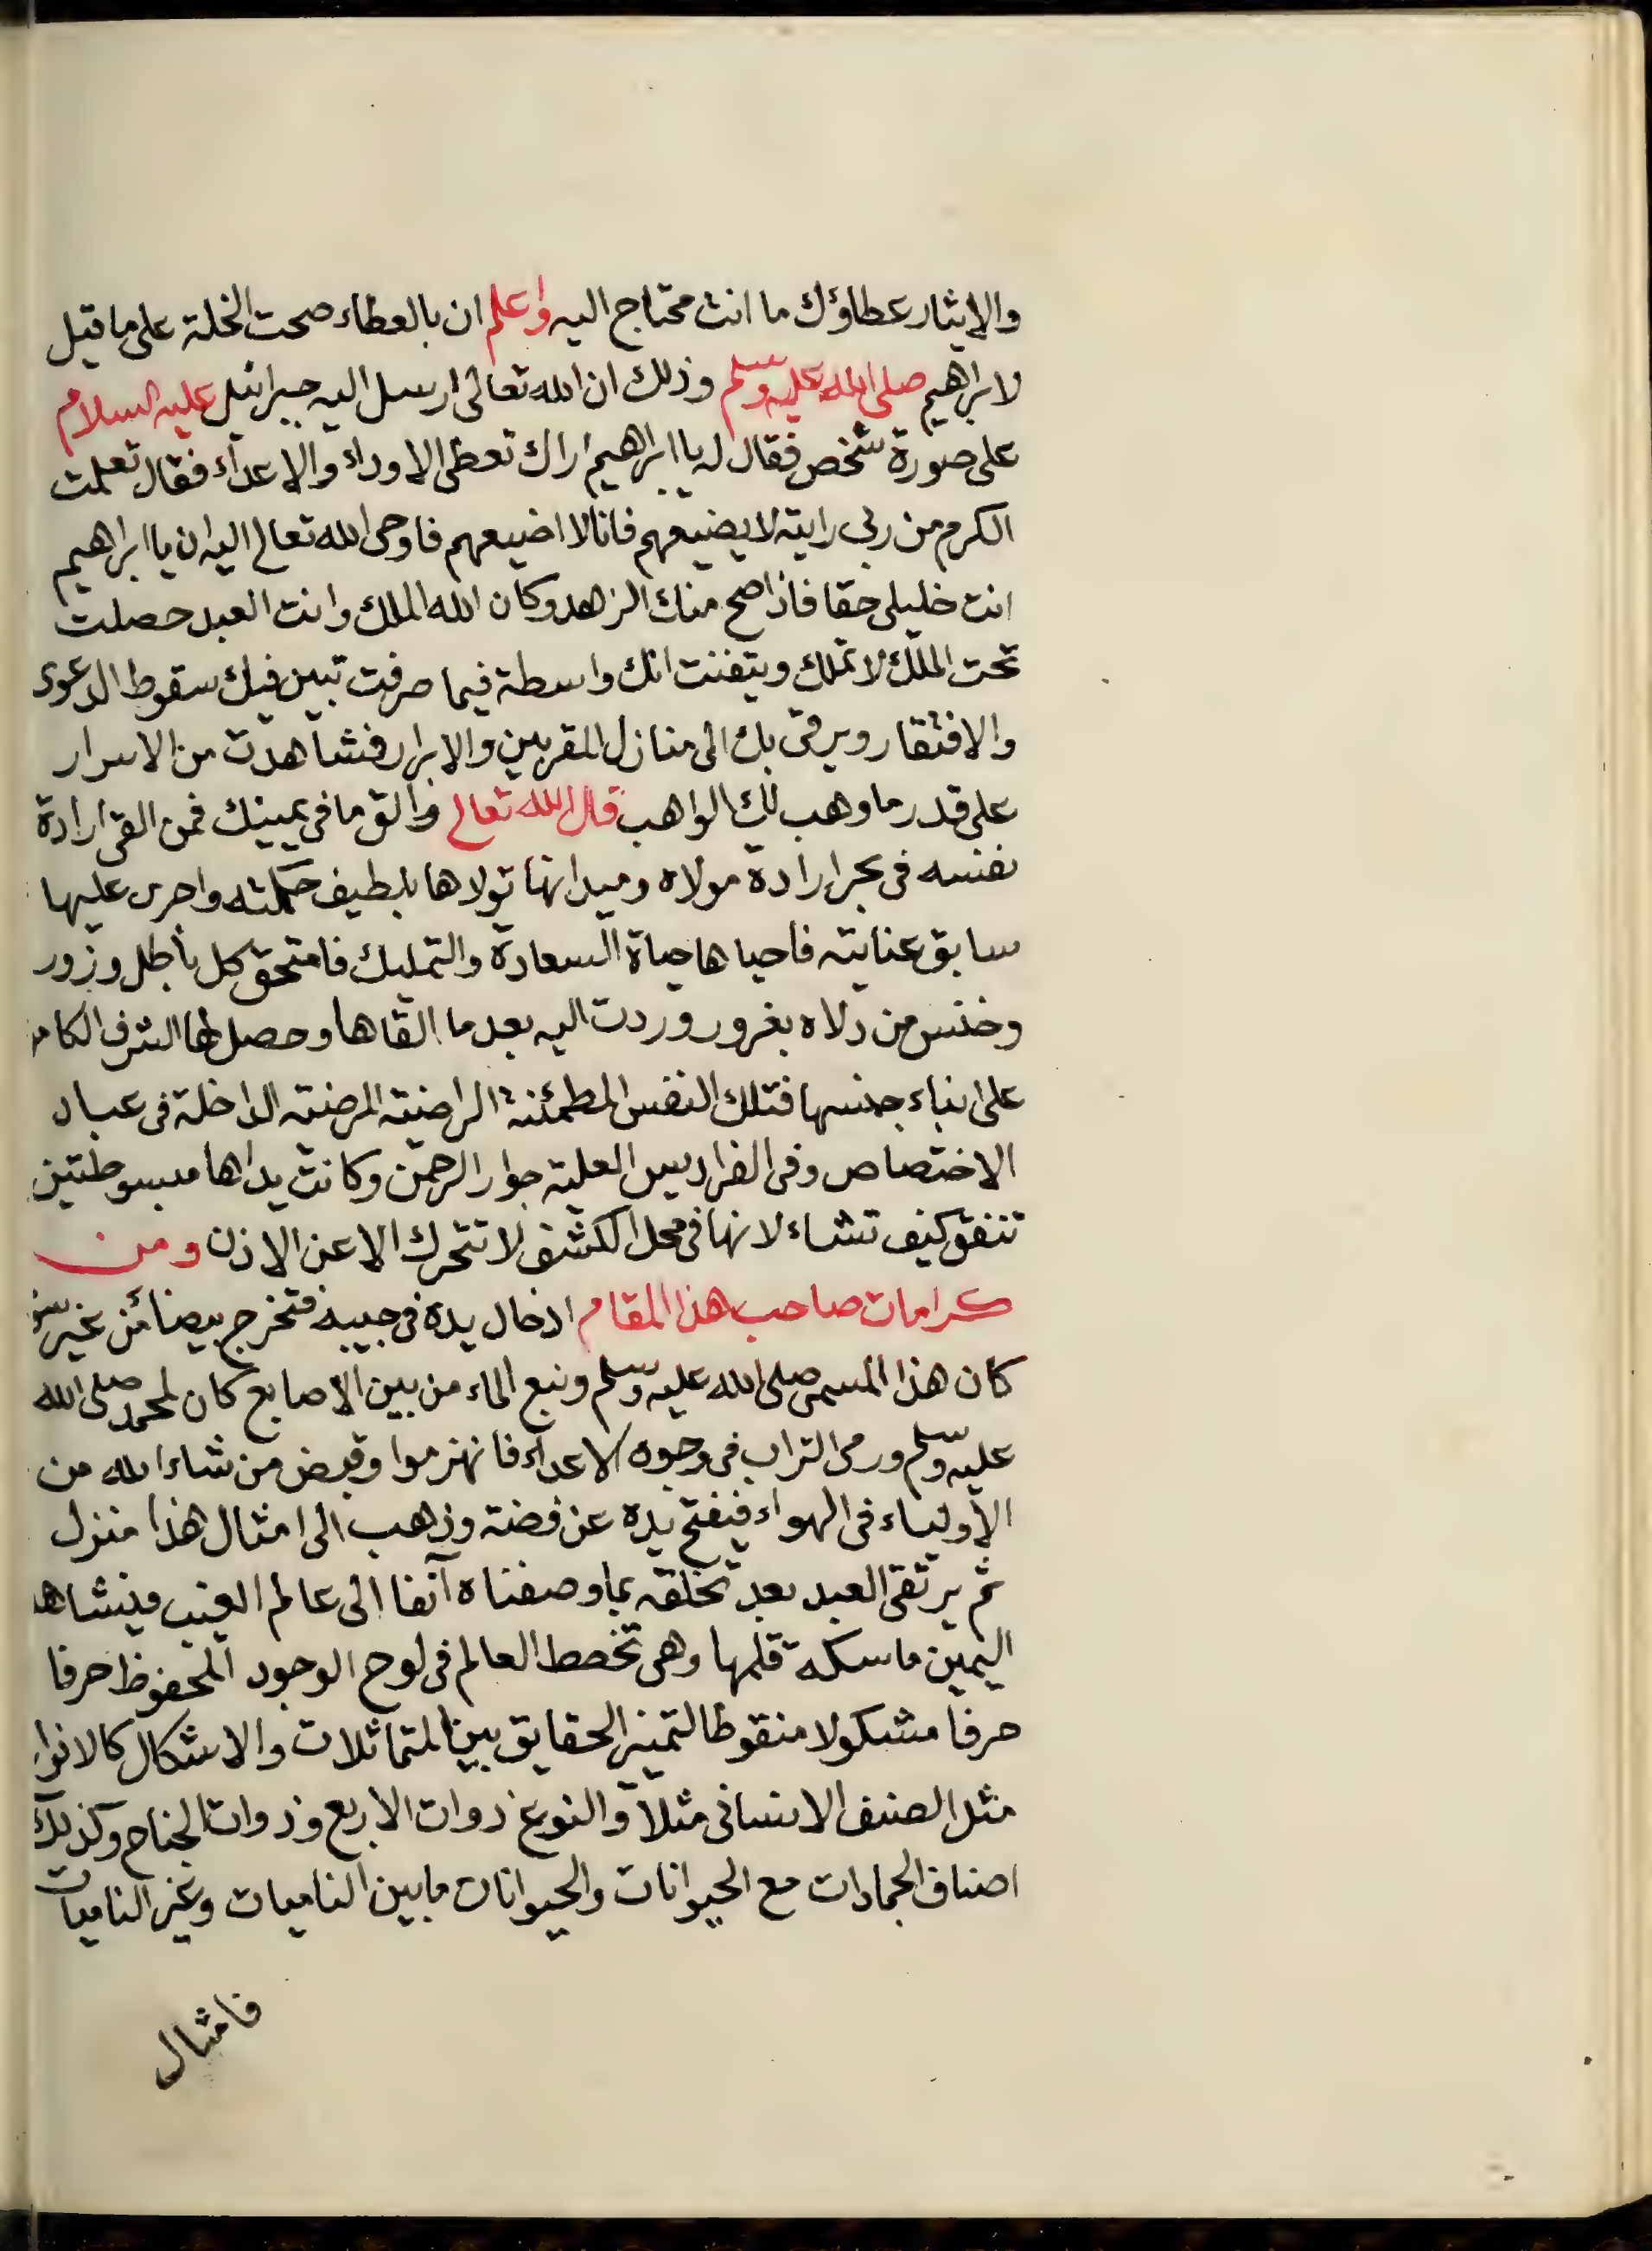 والايثار عطاؤك ما انت محتاج اليه واعلم ان بالعطاء صحت الخلة على ما قيل
لابرٰهيم صلى الله عليه وسلم وذلك ان الله تعالى ارسل اليه جبرائيل عليه السلام
على صورة شخص فقال له يا ابرٰهيم اراك تعطى الاوداء والاعداء فقال تعلمت
الكرم من ربى رايته لا يضيعهم فانا لا اضيعهم فاوحى الله تعالى اليه ان يا ابراهيم
انت خليلى حقا فاذا صح منك الزهد وكان الله الملك وانت العبد حصلت
تحت الملك لا تملك ويتقنت انك واسطة فيما صرفت تبين فيك سقوط الدعوى
والافتقار ويرقى بك الى منازل المقربين والابرار فشاهدت من الاسرار
على قدر ما وهب لك الواهب قال الله تعالى والق ما فى يمينك فمن القى ارادة
نفسه فى بحر ارادة مولاه وميدانها تولاها بلطيف حكمته واجرى عليها
سابق عنايته فاحياها حياة السعادة والتمليك فامتحق كل باطل وزور
وخنس من دلاه بغرور وردت اليه بعد ما القاها وحصل لها الشرف الكامل
على ابناء جنسها فتلك النفس المطمئنة الراضية المرضية الداخلة فى عباد
الاختصاص وفى الفراديس العلية جوار الرحمن وكانت يداها مبسوطتين
تنفق كيف تشاء لانها فى محل الكشف لا تتحرك الا عن الاذن ومن
كرامات صاحب هذا المقام ادخال يده فى جيبه فتخرج بيضا من غير سو
كان هذا المسمى صلى الله عليه وسلم ونبع الماء من بين الاصابع كان لمحمد صلى الله
عليه وسلم ورمى التراب فى وجوه الاعداء فانهزموا وقبض من شاء الله من
الاولياء فى الهواء فيفتح يده عن فضة وذهب الى امثال هذا منزل
ثم يرتقى العبد بعد تخلقه بما وصفناه آنفا الى عالم الغيب فيشاهد
اليمين ماسكة قلمها وهى تخطط العالم فى لوح الوجود المحفوظ حرفا
حرفا مشكولا منقوطا لتميز الحقايق بين المتماثلات والاشكال كالانواع
مثل الصنف الانسانى مثلا والنوع ذوات الاربع وذوات الجناح وكذلك
اصناف الجمادات مع الحيوانات والحيوانات ما بين الناميات وغير الناميات
فامثال